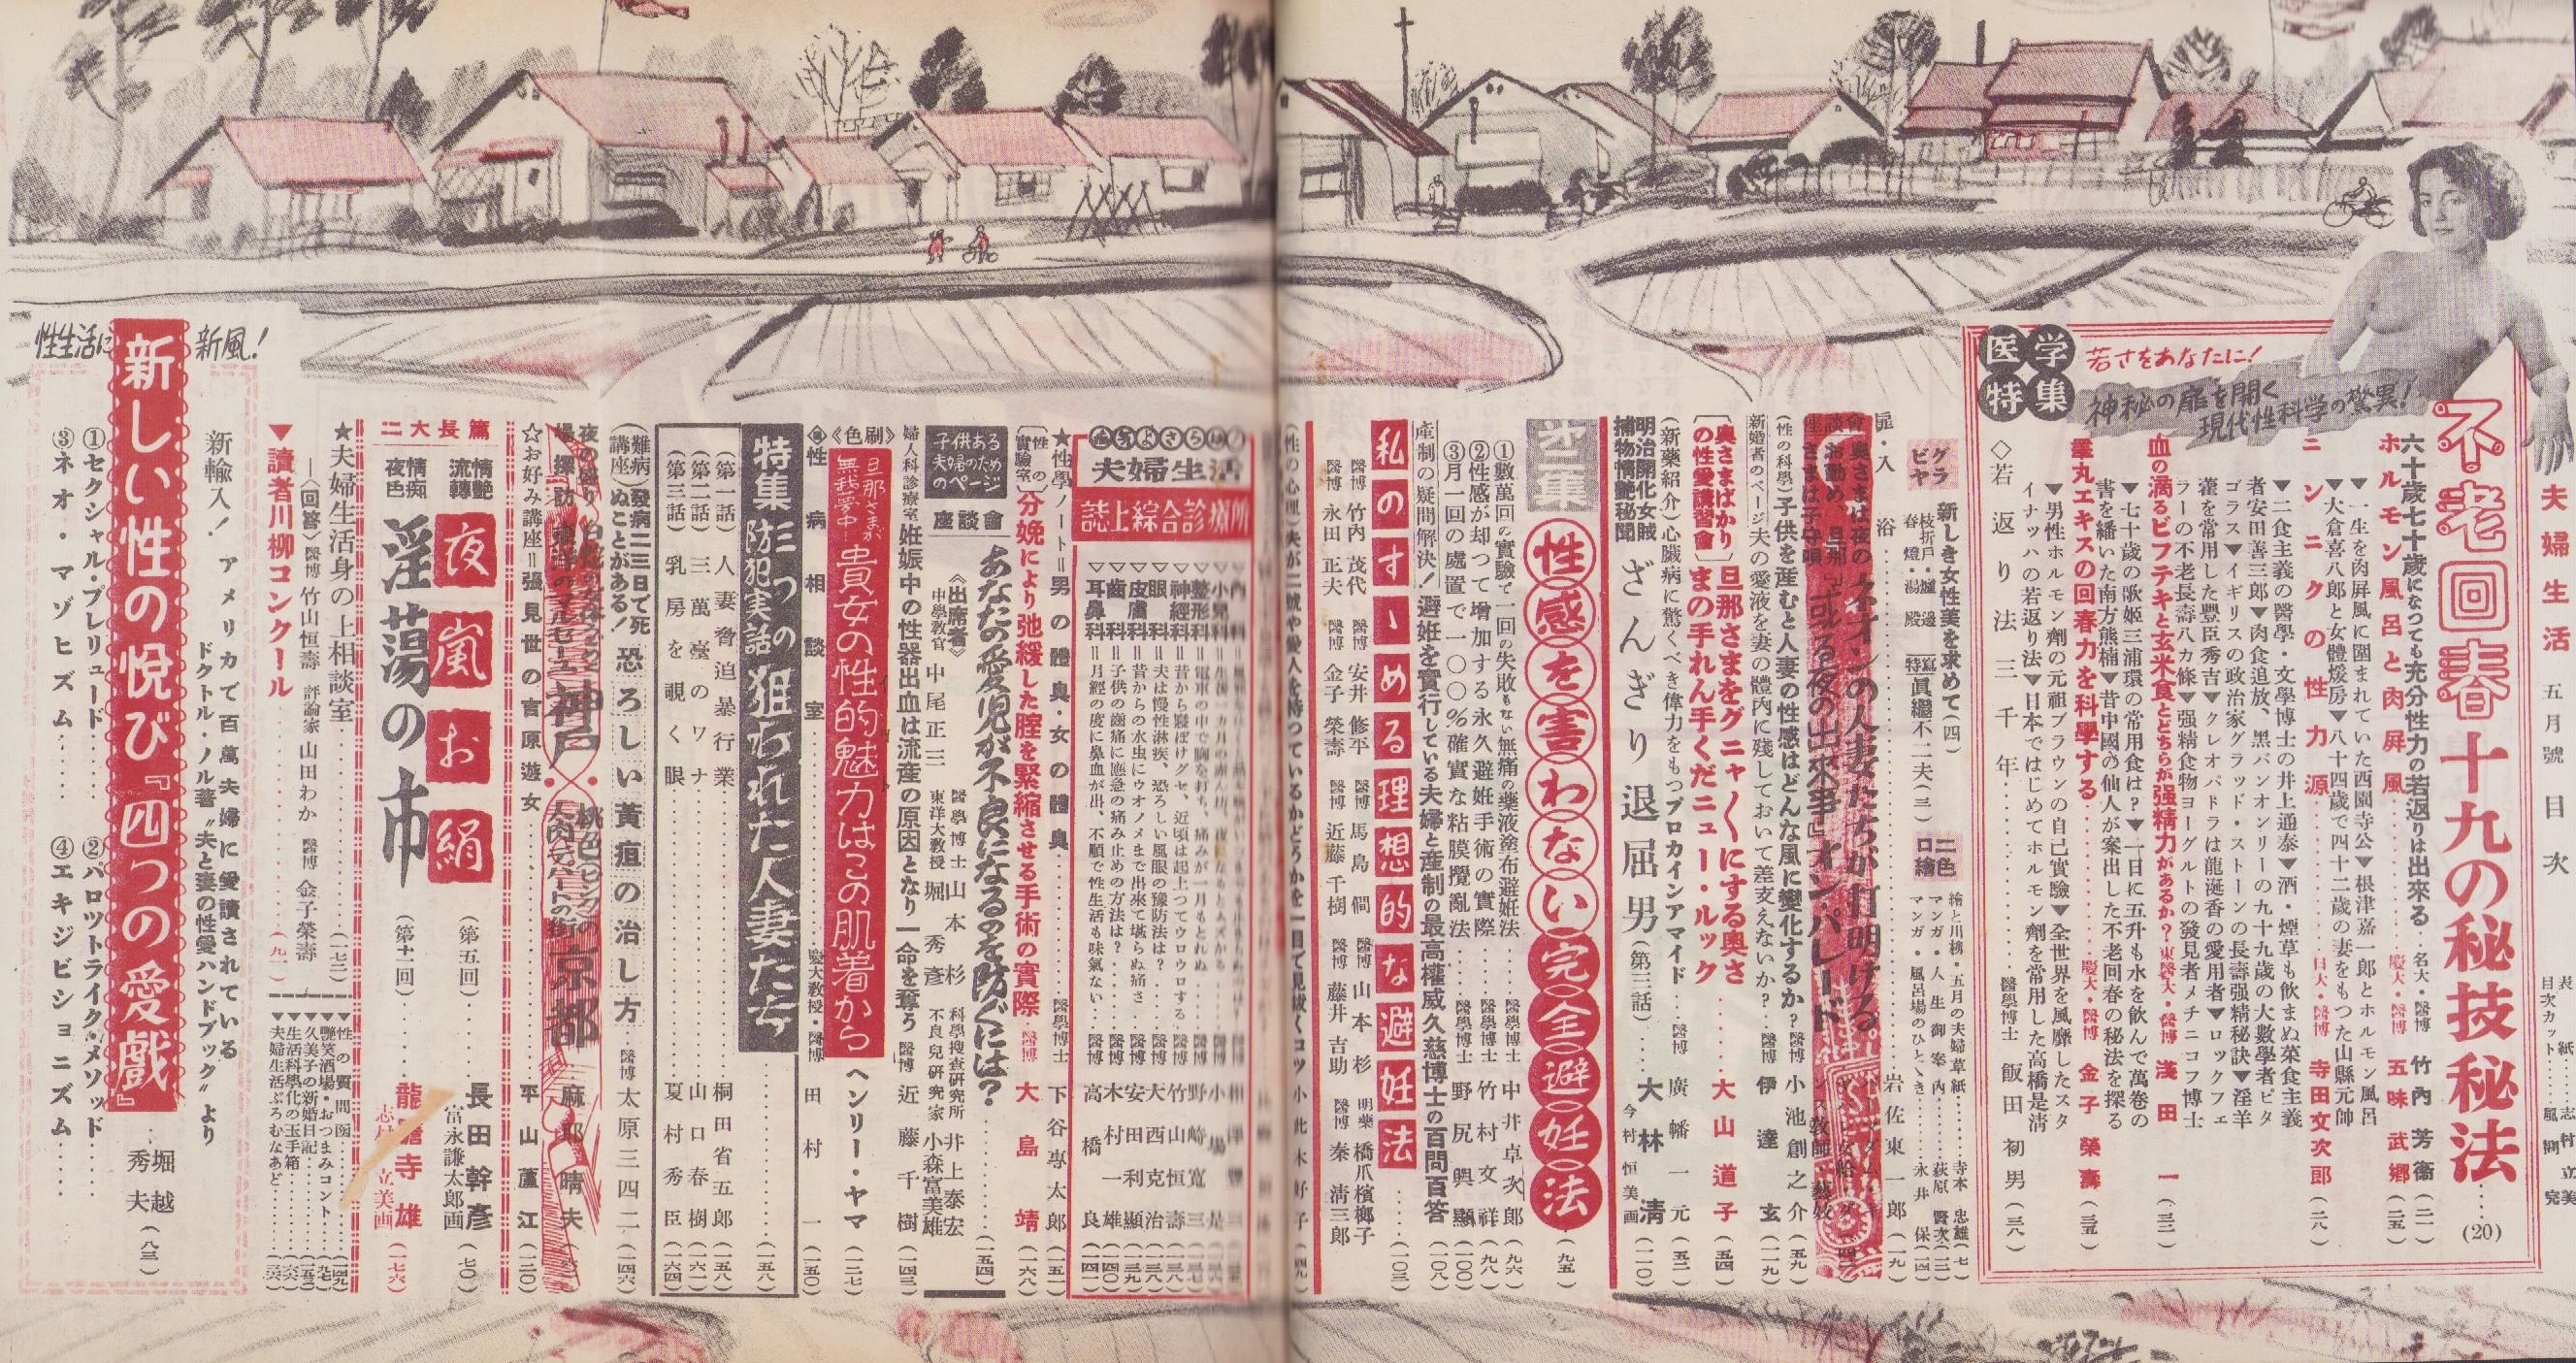 夫婦生活 五月號 目次
医学特集
若さをあなたに!
神秘の扉を開く
現代性科学の驚異!
不老回春十九の秘技秘法……(20)
六十歳七十歳になつても充分性力の若返りは出來る・名大・醫博 竹内芳衞(二一)
ホルモン風呂と肉屏風……慶大・醫博 五味武郷(二五)
▼一生を肉屏風に圍まれていた西園寺公▼根津嘉一郎とホルモン風呂
▼大倉喜八郎と女體煖房▼八十四歳で四十二歳の妻をもつた山縣元帥
ニンニクの性力源……日大・醫博 寺田文次郎(二八)
▼二食主義の醫學・文學博士の井上通泰▼酒・煙草も飲まぬ菜食主義
者安田善三郎▼肉食追放、黒パンオンリーの九十九歳の大數學者ピタ
ゴラス▼イギリスの政治家グラッド・ストーンの長壽强精秘訣▼淫羊
藿を常用した豐臣秀吉▼クレオパトラは龍涎香の愛用者▼ロックフェ
ラーの不老長壽八カ條▼强精食物ヨーグルトの發見者メチニコフ博士
血の滴るビフテキと玄米食とどちらが强精力があるか?東醫大・醫博 淺田一(三二)
▼七十歳の歌姫三浦環の常用食は?▼一日に五升も水を飲んで萬巻の
書を繙いた南方熊楠▼昔中國の仙人が案出した不老回春の秘法を探る
睾丸エキスの回春力を科學する……慶大・醫博 金子榮壽(三五)
▼男性ホルモン劑の元祖ブラウンの自己實驗▼全世界を風靡したスタ
イナッハの若返り法▼日本ではじめてホルモン劑を常用した高橋是清
◇若返り法三千年……醫學博士 飯田初男(三八)
グラビヤ
新しき女性美を求めて(四)
枝折戶・爐邊
春燈・湯殿
寫眞 眞繼不二夫(三)
二色口繪
繪と川柳・五月の夫婦草紙……寺本忠雄(七)
マンガ・人生御案内……荻原賢次(一二)
マンガ・風呂場のひととき……永井保(一四)
扉・入浴……岩佐東一郎(一九)
奥さまは夜のネオンの人妻たちが打明ける
『或る夜の出來事』オン・パレード
(性の科學)子供を産むと人妻の性感はどんな風に變化するか?……醫博 小池創之介(五九)
新婚者のページ 夫の愛液を妻の體内に殘しておいて差支えないか?……醫博 伊達玄(一一九)
奥さまばかりの性愛講習會
旦那さまをグニャグニャにする奥さまの手れん手くだニュー・ルック……大山道子(五四)
(新藥紹介)心臟病に驚くべき偉力をもつプロカインアマイド……醫博 廣幡一元(五二)
明治開化女賊捕物情艶秘聞
ざんぎり退屈男(第三話)……大林清 今村恒美画(一一〇)
性感を害わない完全避妊法(九五)
①數萬回の實驗で一回の失敗もない無痛の藥液塗布避妊法……醫學博士 中井卓次郎(九六)
②性感が却つて增加する永久避妊手術の實際……醫學博士 竹村文祥(九八)
③月一回の處置で一〇〇%確實な粘膜攪亂法……醫學博士 野尻興顯(一〇〇)
産制の疑問解決! 避妊を實行している夫婦と産制の最高權威久慈博士の百問百答(一〇八)
私のすゝめる理想的な避妊法……(一〇三)
醫博 竹内茂代 醫博 安井修平 醫博 馬島僴 醫博 山本杉 明藥 橋爪檳榔子
醫博 永田正夫 醫博 金子榮壽 醫博 近藤千樹 醫博 藤井吉助 醫博 秦清三郎
夫婦生活
誌上綜合診
▽整形科
▽神經科=昔から寢ぼけグセ、近頃は起上つてウロウロする・醫博 竹山恒壽(一三八)
▽眼科=夫は慢性淋疾、恐ろしい風眼の豫防法は?……醫博 大西克治(一三八)
▽皮膚科=昔からの水虫にウオノメまで出來て堪らぬ痛さ・醫博 安田利顯(一三九)
▽歯科=子供の齒痛に應急の痛み止めの方法は?……醫博 木村一雄(一四〇)
▽耳鼻科=月經の度に鼻血が出、不順で性生活も味氣ない……醫博 高橋良(一四一)
★性學ノート=男の體臭・女の體臭……醫學博士 下谷專太郎(一五一)
(性の實驗室)分娩により弛緩した腟を緊縮させる手術の實際 醫博 大島靖(一六八)
子供ある夫婦のためのページ
座談會 あなたの愛児が不良になるのを防ぐには?……(一五四)
《出席者》醫學博士 山本杉 科學捜査研究所 井上泰宏
中學教官 中尾正三 東洋大教授 堀秀彦 不良兒研究家 小森富美雄
婦人科診療室 妊娠中の性器出血は流産の原因となり一命を奪う 醫博 近藤千樹(一四三)
《色刷》旦那さまが無我夢中 貴女の性的魅力はこの肌着から ヘンリー・ヤマ(一二七)
性病相談室……慶大教授・醫博 田村一(一五〇)
特集 防犯実話 三つの狙われた人妻たち……(一五八)
(第一話)人妻脅迫暴行業……桐田省五郎(一五八)
(第二話)三萬臺のワナ……山口春樹(一六一)
(第三話)乳房を覗く眼……夏村秀臣(一六四)
(難病講座)發病二三日で死ぬことがある! 恐ろしい黃疸の治し方・醫博 太原三四二(一四六)
神戶・桃色ピンクの京都
麻耶晴夫
☆お好み講座=張見世の吉原遊女……平山蘆江(一二〇)
二大長篇
情艶流轉 夜嵐お絹(第五回)……長田幹彦 富永謙太郎画(七〇)
情痴夜色 淫蕩の市(第十一回)……龍膽寺雄 志村立美画(一七六)
★夫婦生活身の上相談室……(一七二)
―〈回答〉醫博 竹山恒壽 評論家 山田わか 醫博 金子榮壽―
▼讀者川柳コンクール……(九一)
▼性の質問函……(一四九)
▼艷笑酒場・おつまみコント……(九七)
▼久美子の新婚日記……(一五三)
▼生活科學化の玉手箱……(六六)
▼夫婦生活ぷろむなあど……(二六)
性生活に新風!
新輸入! アメリカで百萬夫婦に愛讀されている
ドクトル・ノル著〝夫と妻の性愛ハンドブック〟より
新しい性の悦び『四つの愛戲』……堀越秀夫(八三)
①セクシャル・プレリュード……
②パロットライク・メソッド……
③ネオ・マゾヒズム……
④エキジビショニズム……